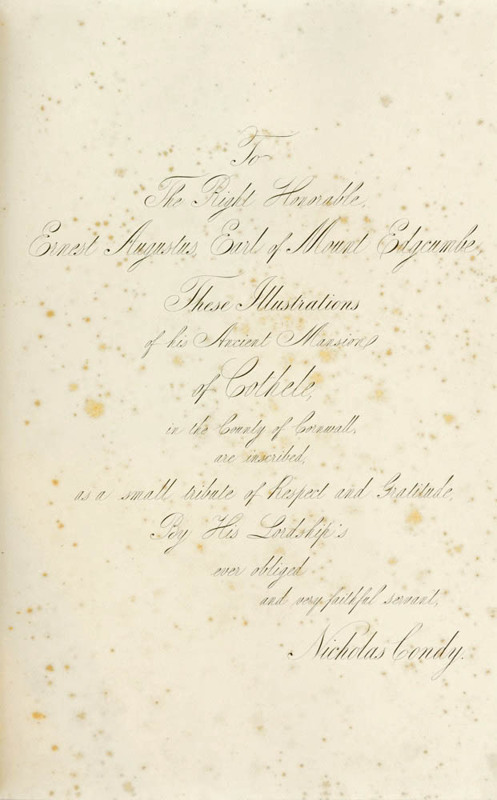 To
The Right Honorable,
Ernest Augustus, Earl of Mount Edgcumbe,
These Illustrations
of his Ancient Mansion
of Cothele,
in the County of Cornwall,
are inscribed,
as a small tribute of Respect and Gratitude,
By His Lordship's
ever obliged
and very faithful servant,
Nicholas Condy.